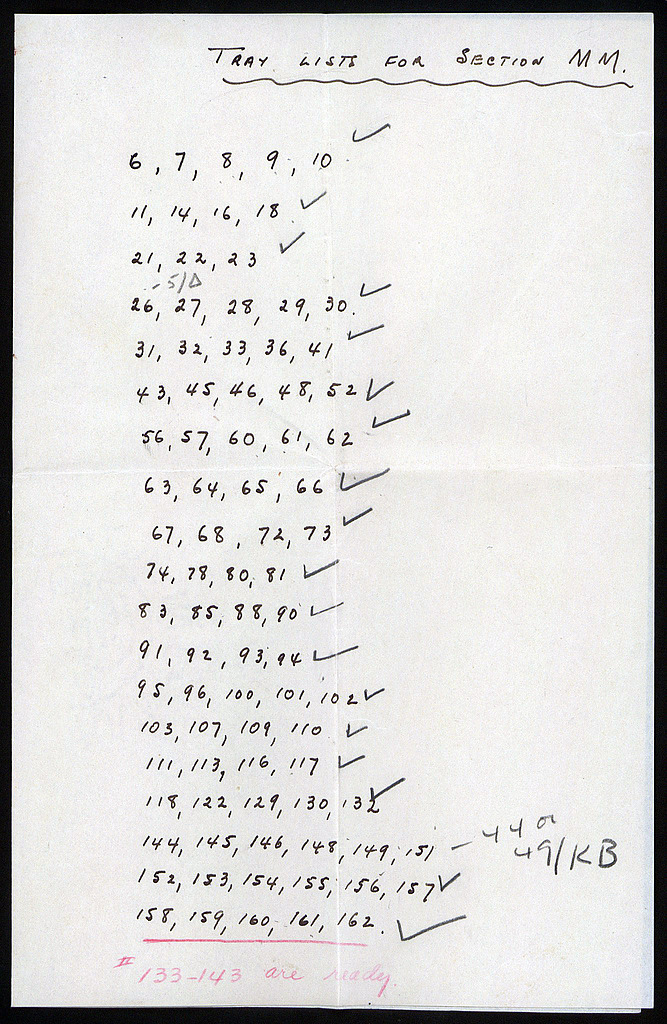 TRAY LISTS FOR SECTION MM.
6, 7, 8, 9, 10 ✓
11, 14, 16, 18 ✓
21, 22, 23 ✓
- 5/Δ
26, 27, 28, 29, 30. ✓
31, 32, 33, 36, 41 ✓
43, 45, 46, 48, 52 ✓
56, 57, 60, 61, 62 ✓
63, 64, 65, 66 ✓
67, 68, 72, 73 ✓
74, 78, 80, 81 ✓
83, 85, 88, 90 ✓
91, 92, 93, 94 ✓
95, 96, 100, 101, 102 ✓
103, 107, 109, 110 ✓
111, 113, 116, 117 ✓
118, 122, 129, 130, 132 ✓
144, 145, 146, 148, 149, 151 – 44 or
49/KB
152, 153, 154, 155, 156, 157 ✓
158, 159, 160, 161, 162. ✓
II 133-143 are ready.